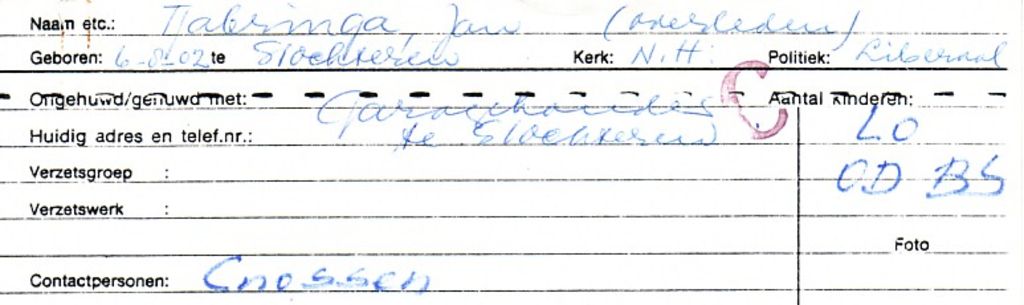 Naam etc.: Tabringa, Jan (overleden)
Geboren: 6-8-02 te Slochteren Kerk: N.H. Politiek: Liberaal
Ongehuwd/gehuwd met: Garagehouder Aantal kinderen:
Huidig adres en telef.nr.: te Slochteren LO
Verzetsgroep : OD BS
Verzetswerk :
Foto
Contactpersonen: Cnossen